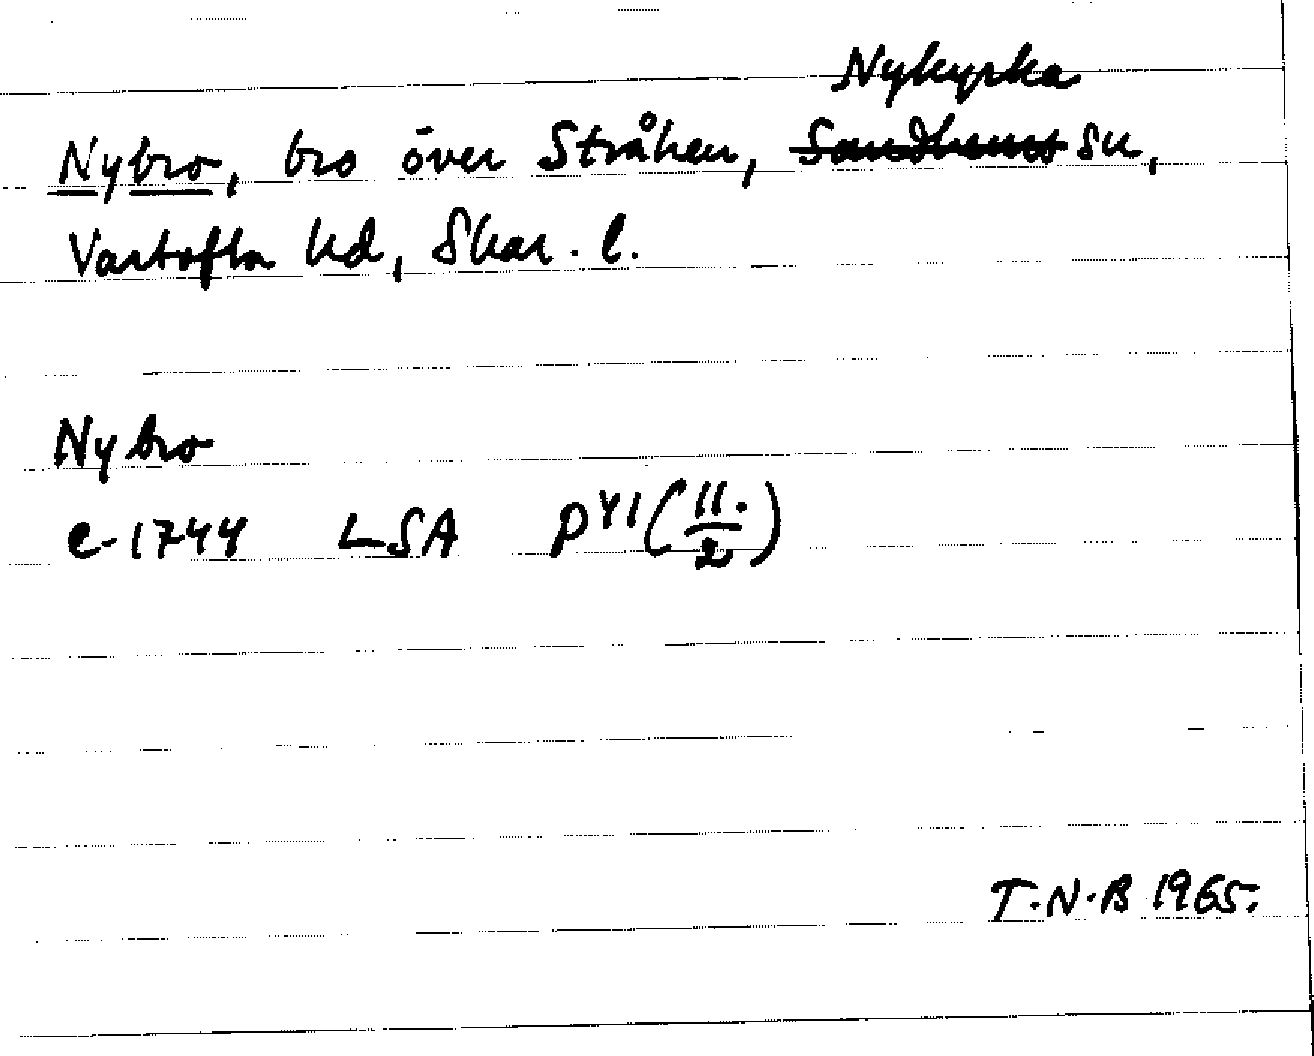 Nykyrka
Nybro, bro över Stråken, Sandhems sn,
Vartofta hd, Skar. l.
Nybro
c. 1744 LSA P41(11:/2)
T.N.B 1965.